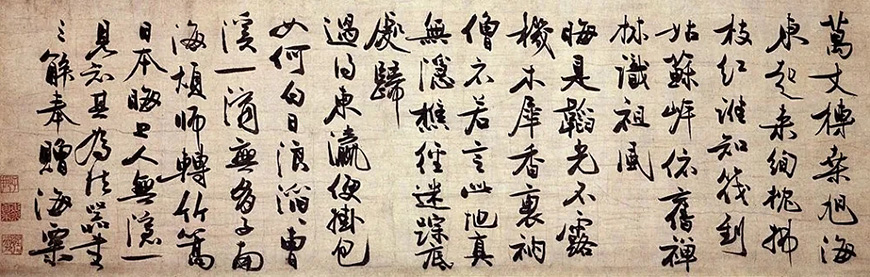 萬丈榑桑旭海
東起來絢枕拂
枝紅誰知筏到
姑蘇岸依舊禪
林識祖風
晦是韜光不露
機木犀香裏衲
僧不若言此地真
無隱樵徑迷蹤底
處歸
過得東瀛便掛包
如何白日浪滔〻曹
溪一滴無多子南
海煩師轉竹篙
日本晦上人無隱一
見知其為法器書
三解奉贈海粟